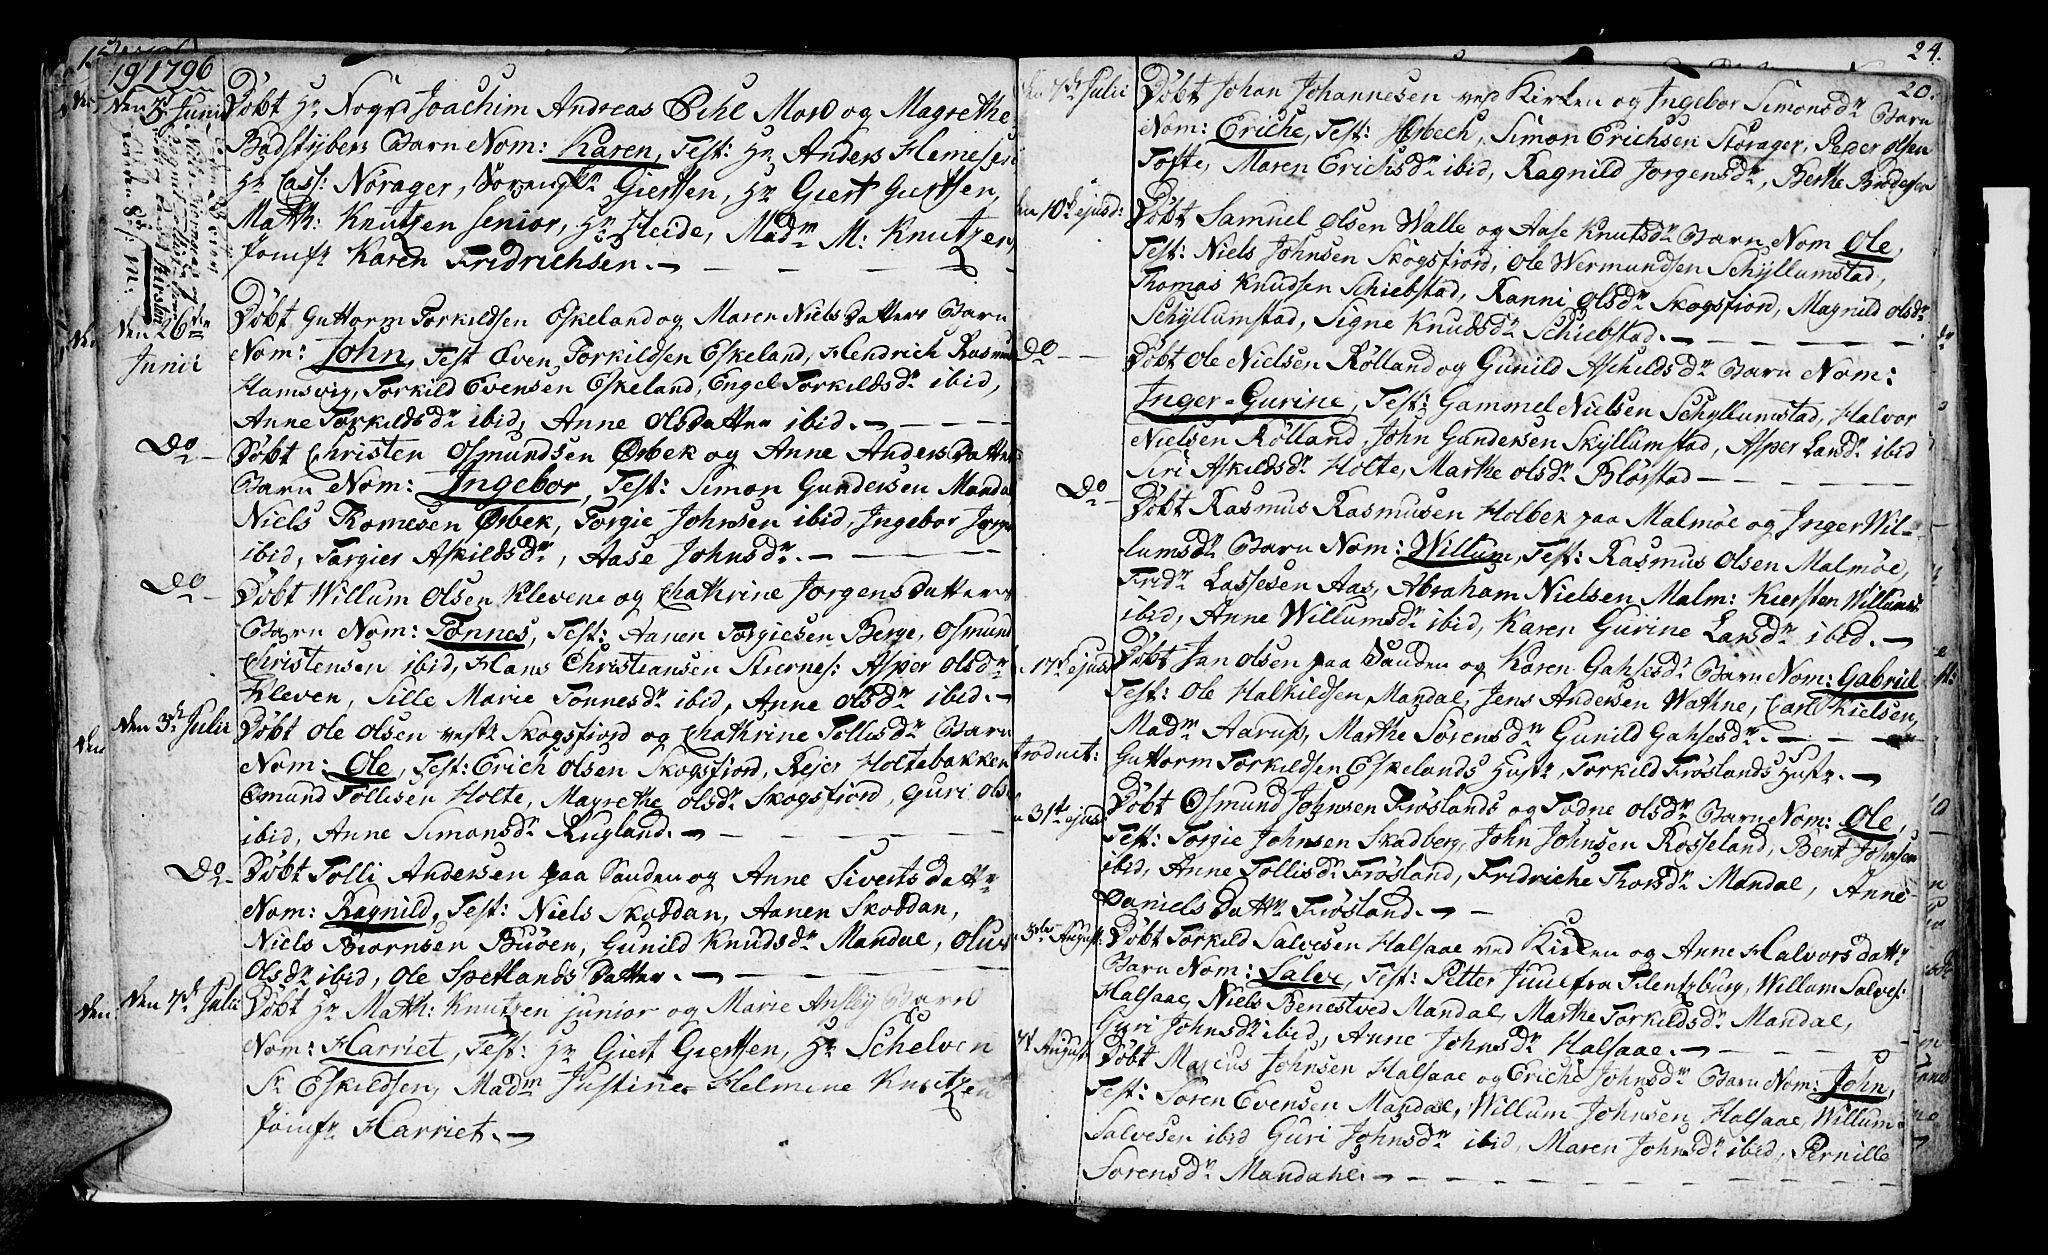 19/1796
Den 5t Junii
Døbt Hr Nogvd Joachim Andreas Pihl Mord og Magrethe
Bødstybers Barn Nom: Karen, Test: Hr Anders Hemesen
Hr Cass: Nørager, Giertsen, Hr Giert Giertsen,
Math: Knutzen senior, Hr Heide, Madm M: Knutzen
Jomfr Karen Fridrichsen.
Den 26de Junii
Døbt Guttorm Torkildsen Eskeland og Maren Niels Datters Barn
Nom: John, Test Even Torkildsen Eskeland, Hendrich Rasmus
Hamsvig, Torkild Evensen Eskeland, Engel Torkildsdr ibid,
Anne Torkildsdr ibid, Anne Olsdatter ibid.
Do
Døbt Christen Osmundsen Øsbek og Anne Anders Datters
Barn Nom: Ingebor, Test: Simon Gundersen Mandal
Niels Tomesen Øsbek, Torgie Johnsen ibid, Ingebor
ibid, Torgier Askildsdr, Aase Johnsdr.
Do
Døbt Willum Olsen Klevene og Chathrine Jorgens Datters
Barn Nom: Tønnes, Test: Aanen Torgiesen Berge, Osmund
Christensen ibid, Hans Christiansen Stiernes: Asper Olsdr
Kleven, Sille Marie Tonnesdr ibid, Anne Olsdr ibid.
Den 3t Julii
Døbt Ole Olsen vestr Skogsfiord og Chathrine Tollisdr Barn
Nom: Ole, Test: Erich Olsen Skogsfiord, Rejer Holtebakken
Omund Tollisen Holte, Magrethe Olsdr Skogsfiord, Guri Ols
ibid, Anne Simonsdr Rugland.
Do
Døbt Tolli Andersen paa Sanden og Anne Siverts datter
Nom: Ragnild, Test: Niels Skoddan, Aanen Skoddan,
Niels Biørnsen Buøen, Gunild Knudsdr Mandal, Olus
Olsdr ibid, Ole Spetlands Datter.
Den 7de Julii
Døbt Hr Math: Knutzen junior og Marie Ansley Barn
Nom: Harriet, Test: Hr Giert Giertsen, Hr Schelven
Sr Eskildsen, Madm Justine Helmine Knutzen
Jomfr Harriet.
24.
20.
7de Julii
Døbt Johan Johannesen ved Kirken og Ingebor Simonsdr Barn
Nom: Eriche, Test: Øsbech, Simon Erichsen Størager, Peder Olsen
Tofte, Maren Erichsdr ibid, Ragnild Jorgensdr, Berthe
10de ejusd:
Døbt Samuel Olsen Walle og Aase Knutsdr Barn Nom Ole,
Test: Niels Johnsen Skogsfiord, Ole Wermundsen Schyllumstad,
Thomas Knudsen Schiebstad, Ranni Olsdr Skogsfiord, Magnild Olsdr
Schyllumstad, Signe Knudsdr Schiebstad.
Do
Døbt Ole Nielsen Rølland og Gunild Aschildsdr Barn Nom:
Inger-Gurine, Test: Gammel Nielsen Schyllumstad, Halvor
Nielsen Rølland, John Gundersen Skyllumstad, Asper Landr ibid
Siri Askildsdr Holte, Marthe Olsdr Blørstad
Do
Døbt Rasmus Rasmusen Holbek paa Malmøe og Inger Wil-
lumsdr Barn Nom: Willum, Test: Rasmus Olsen Malmøe,
Fridr Lassesen Aas, Abraham Nielsen Malm: Kiersten Willumsdr
ibid, Anne Willumsdr ibid, Karen Gurine Larsdr ibid.
17de ejusd
Døbt Jan Olsen paa Sanden og Karen Gahsesdr Barn Nom: Gabriel
Test: Ole Halkildsen Mandal, Jens Andersen Wathne, Carl Nielsen,
Madm Aarup, Marthe Sørensdr Gunild Gahsesdr.
troduct:
Guttorm Torkildsen Eskelands Hustr, Torkild Frøslands Hustr.
31te ejusd
Døbt Osmund Johnsen Frøslands og Todne Olsdr Barn Nom: Ole,
Test: Torgie Johnsen Skadberg, John Johnsen Rosseland, Bent Johnsen
ibid, Anne Tollisdr Frøsland, Fridriche Thorsdr Mandal, Anne
Daniels Dattr Frøsland.
August:
Døbt Torkild Salvesen Halsaae ved Kirken og Anne Halvors datter
Barn Nom: Salve, Test: Petter Juuel fra Flentzburg, Willum Salves:
Halsaae, Niels Benestved Mandal, Marthe Torkildsdr Mandal,
Guri Johnsdr ibid, Anne Johnsdr Halsaae.
August
Døbt Marcus Johnsen Halsaae og Eriche Johnsdr Barn Nom: John,
Test: Søren Evensen Mandal, Willum Johnsen Halsaae, Willum
Salvesen ibid Guri Johnsdr ibid, Maren Johnsdr ibid, Pernille
Sorensdr Mandahl.